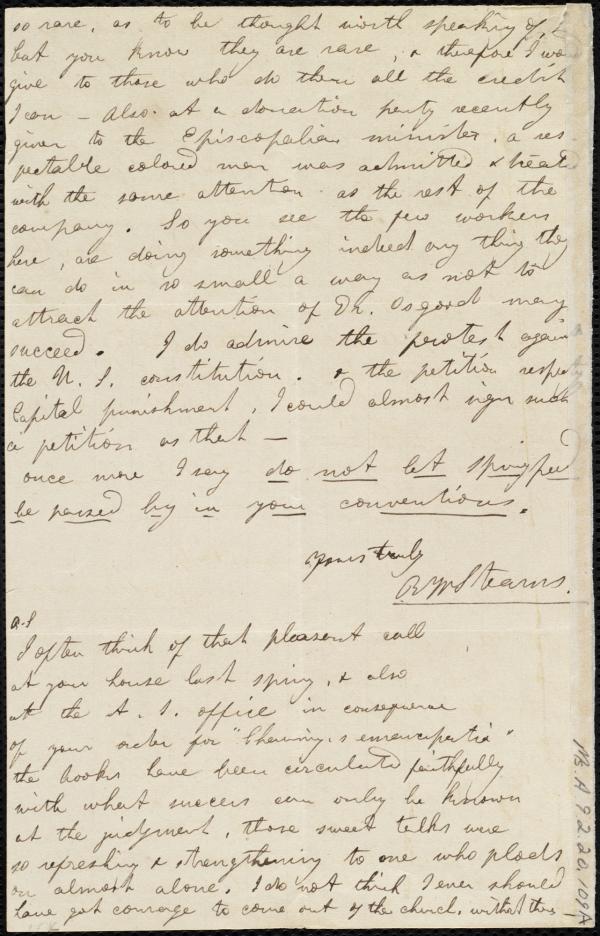 so rare, as to be thought worth speaking of, &
but you know they are rare, & therefore I wo
give to those who do them all the credit
I can - Also at a donation party recently
given to the Episcopalian minister, a res
pectable colored man was admitted & treate
with the same attention as the rest of the
company. So you see the few workers
here, are doing something indeed any thing they
can do in so small a way as not to
attract the attention of Dr. Osgood may
succeed. I do admire the protest again
the U. S. constitution. & the petition respec
Capital punishment, I could almost sign such
a petition as that -
once more I say do not let Springfield
be passed by in your conventions.
Yours truly
R W Stearns.
P.S
I often think of that pleasant call
at your house last spring, & also
at the A. S. office in consequence
of your order for "Channing,s emancipatio"
the books have been circulated faithfully
with what success can only be known
at the judgment, those sweet talks were
so refreshing & strengthening to one who plods
on almost alone. I do not think I ever should
have got courage to come out of the church, without this
Ms. A 9.2.20.109A